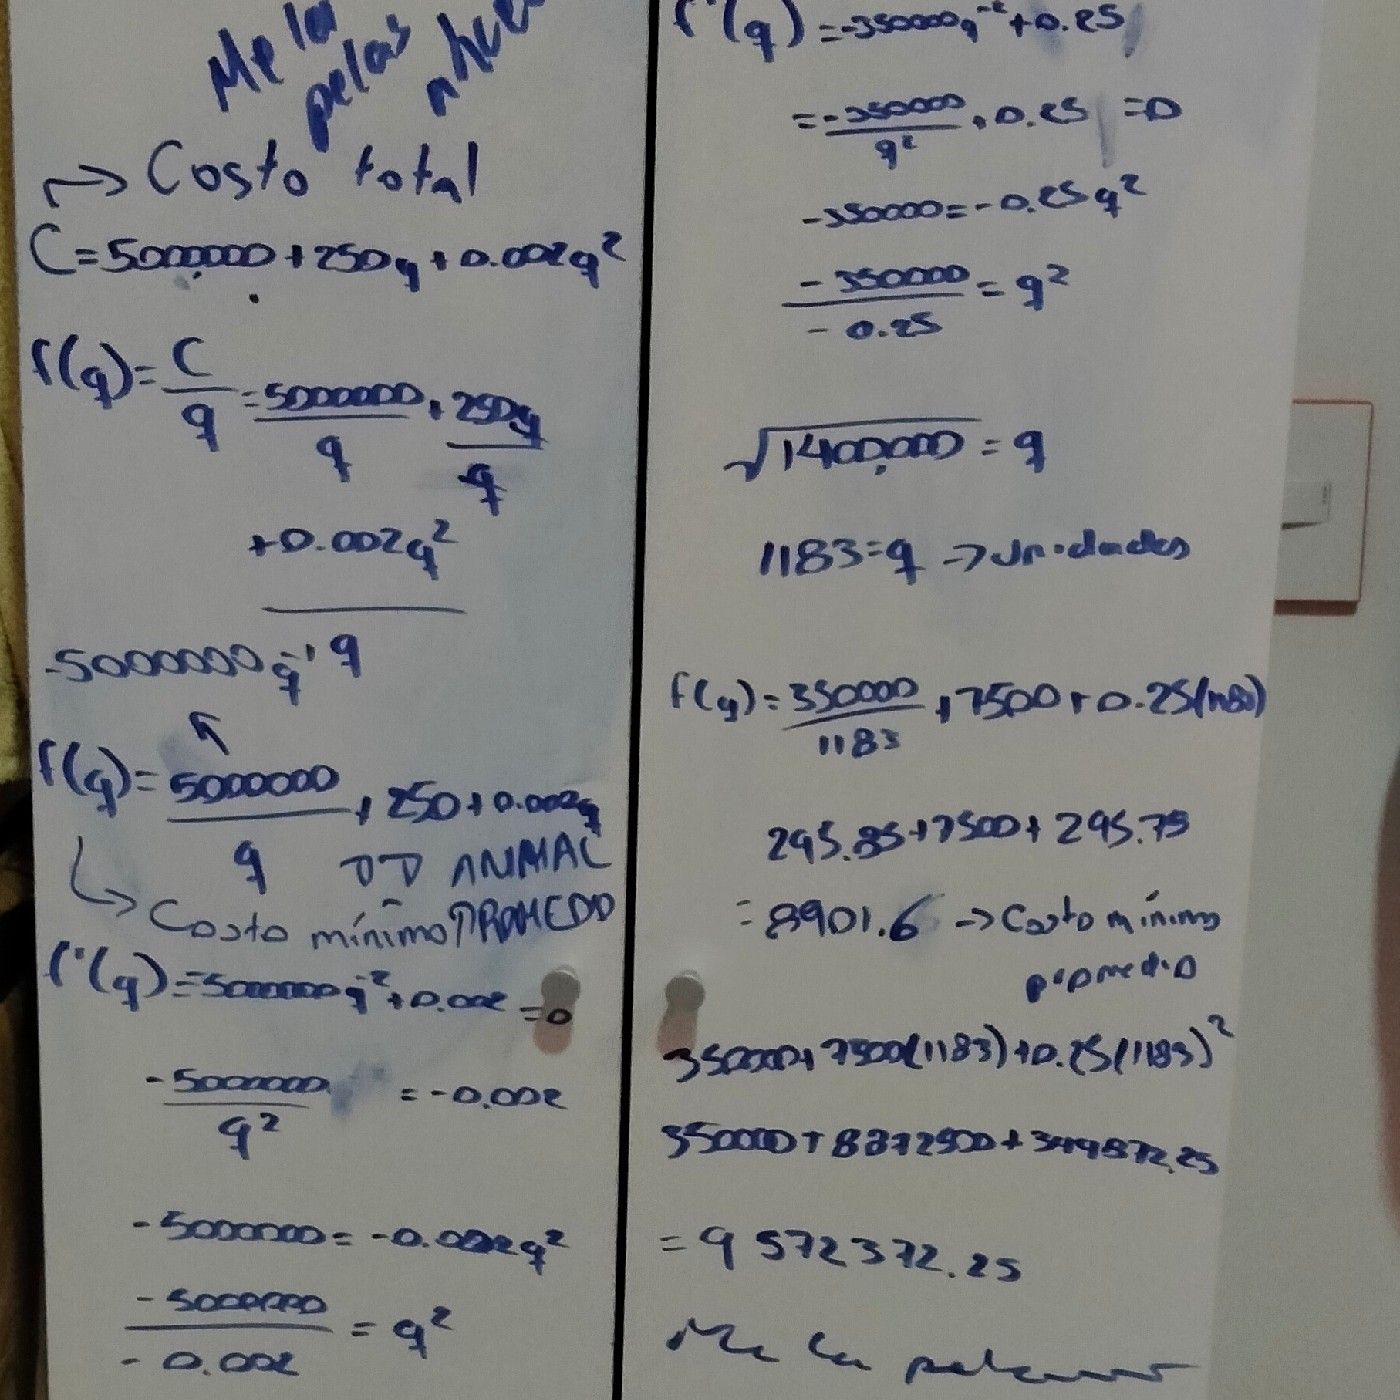 Me la
pelas
→ Costo total
C=5000,000+250q+0.002q²
f(q)=C/q=5000000/q+250q/q
+0.002q²/q
5000000q⁻¹
f(q)=5000000/q+250+0.002q
ANIMAL
→ Costo mínimo PROMEDIO
f'(q)=-5000000q⁻²+0.002=0
-5000000/q²=-0.002
-5000000=-0.002q²
-5000000/-0.002=q²
f'(q)=-350000q⁻²+0.25
=-350000/q²+0.25=0
-350000=-0.25q²
-350000/-0.25=q²
√1400,000=q
1183=q→unidades
f(q)=350000/1183+7500+0.25(1183)
295.85+7500+295.75
=8901.6→Costo mínimo
promedio
350000+7500(1183)+0.25(1183)²
350000+8872500+349872.25
=9572372.25
Me la